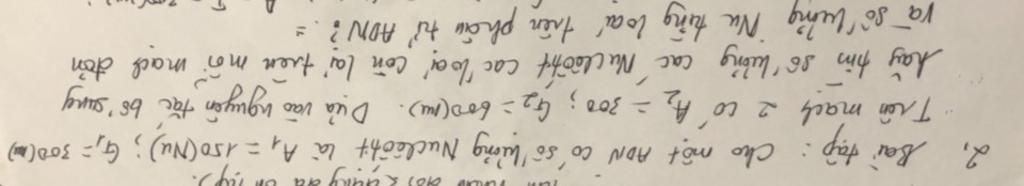 2, Bài tập: Cho một ADN có số lượng Nuclêôtit là A₁ = 150 (Nu); G₁ = 300 (nu)
Trên mạch 2 có A₂ = 300; G₂ = 600 (nu). Dựa vào nguyên tắc bổ sung
hãy tìm số lượng các Nuclêôtit các loại còn lại trên mỗi mạch đơn
và số lượng Nu từng loại trên phân tử ADN? =